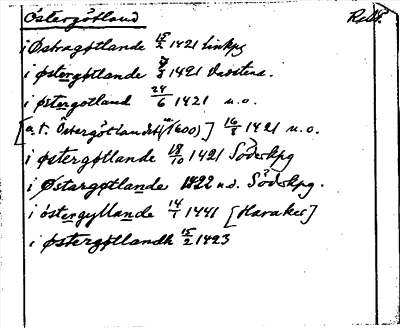 Östergötland
i Østragøtlande 15/2 1421 Linkpg
i østergøtlande 7/3 1421 Vadstena.
i østergotland 24/6 1421 u.o.
[a.t. Östergötlandst (1600)] 16/8 1421 u.o.
i østergøtlande 18/10 1421 Söderkpg
i Østargøtlande 1422 u.d. Söderkpg.
i östergyllande 14/1 1441 [Haraker]
i østergøtlandh 15/2 1423